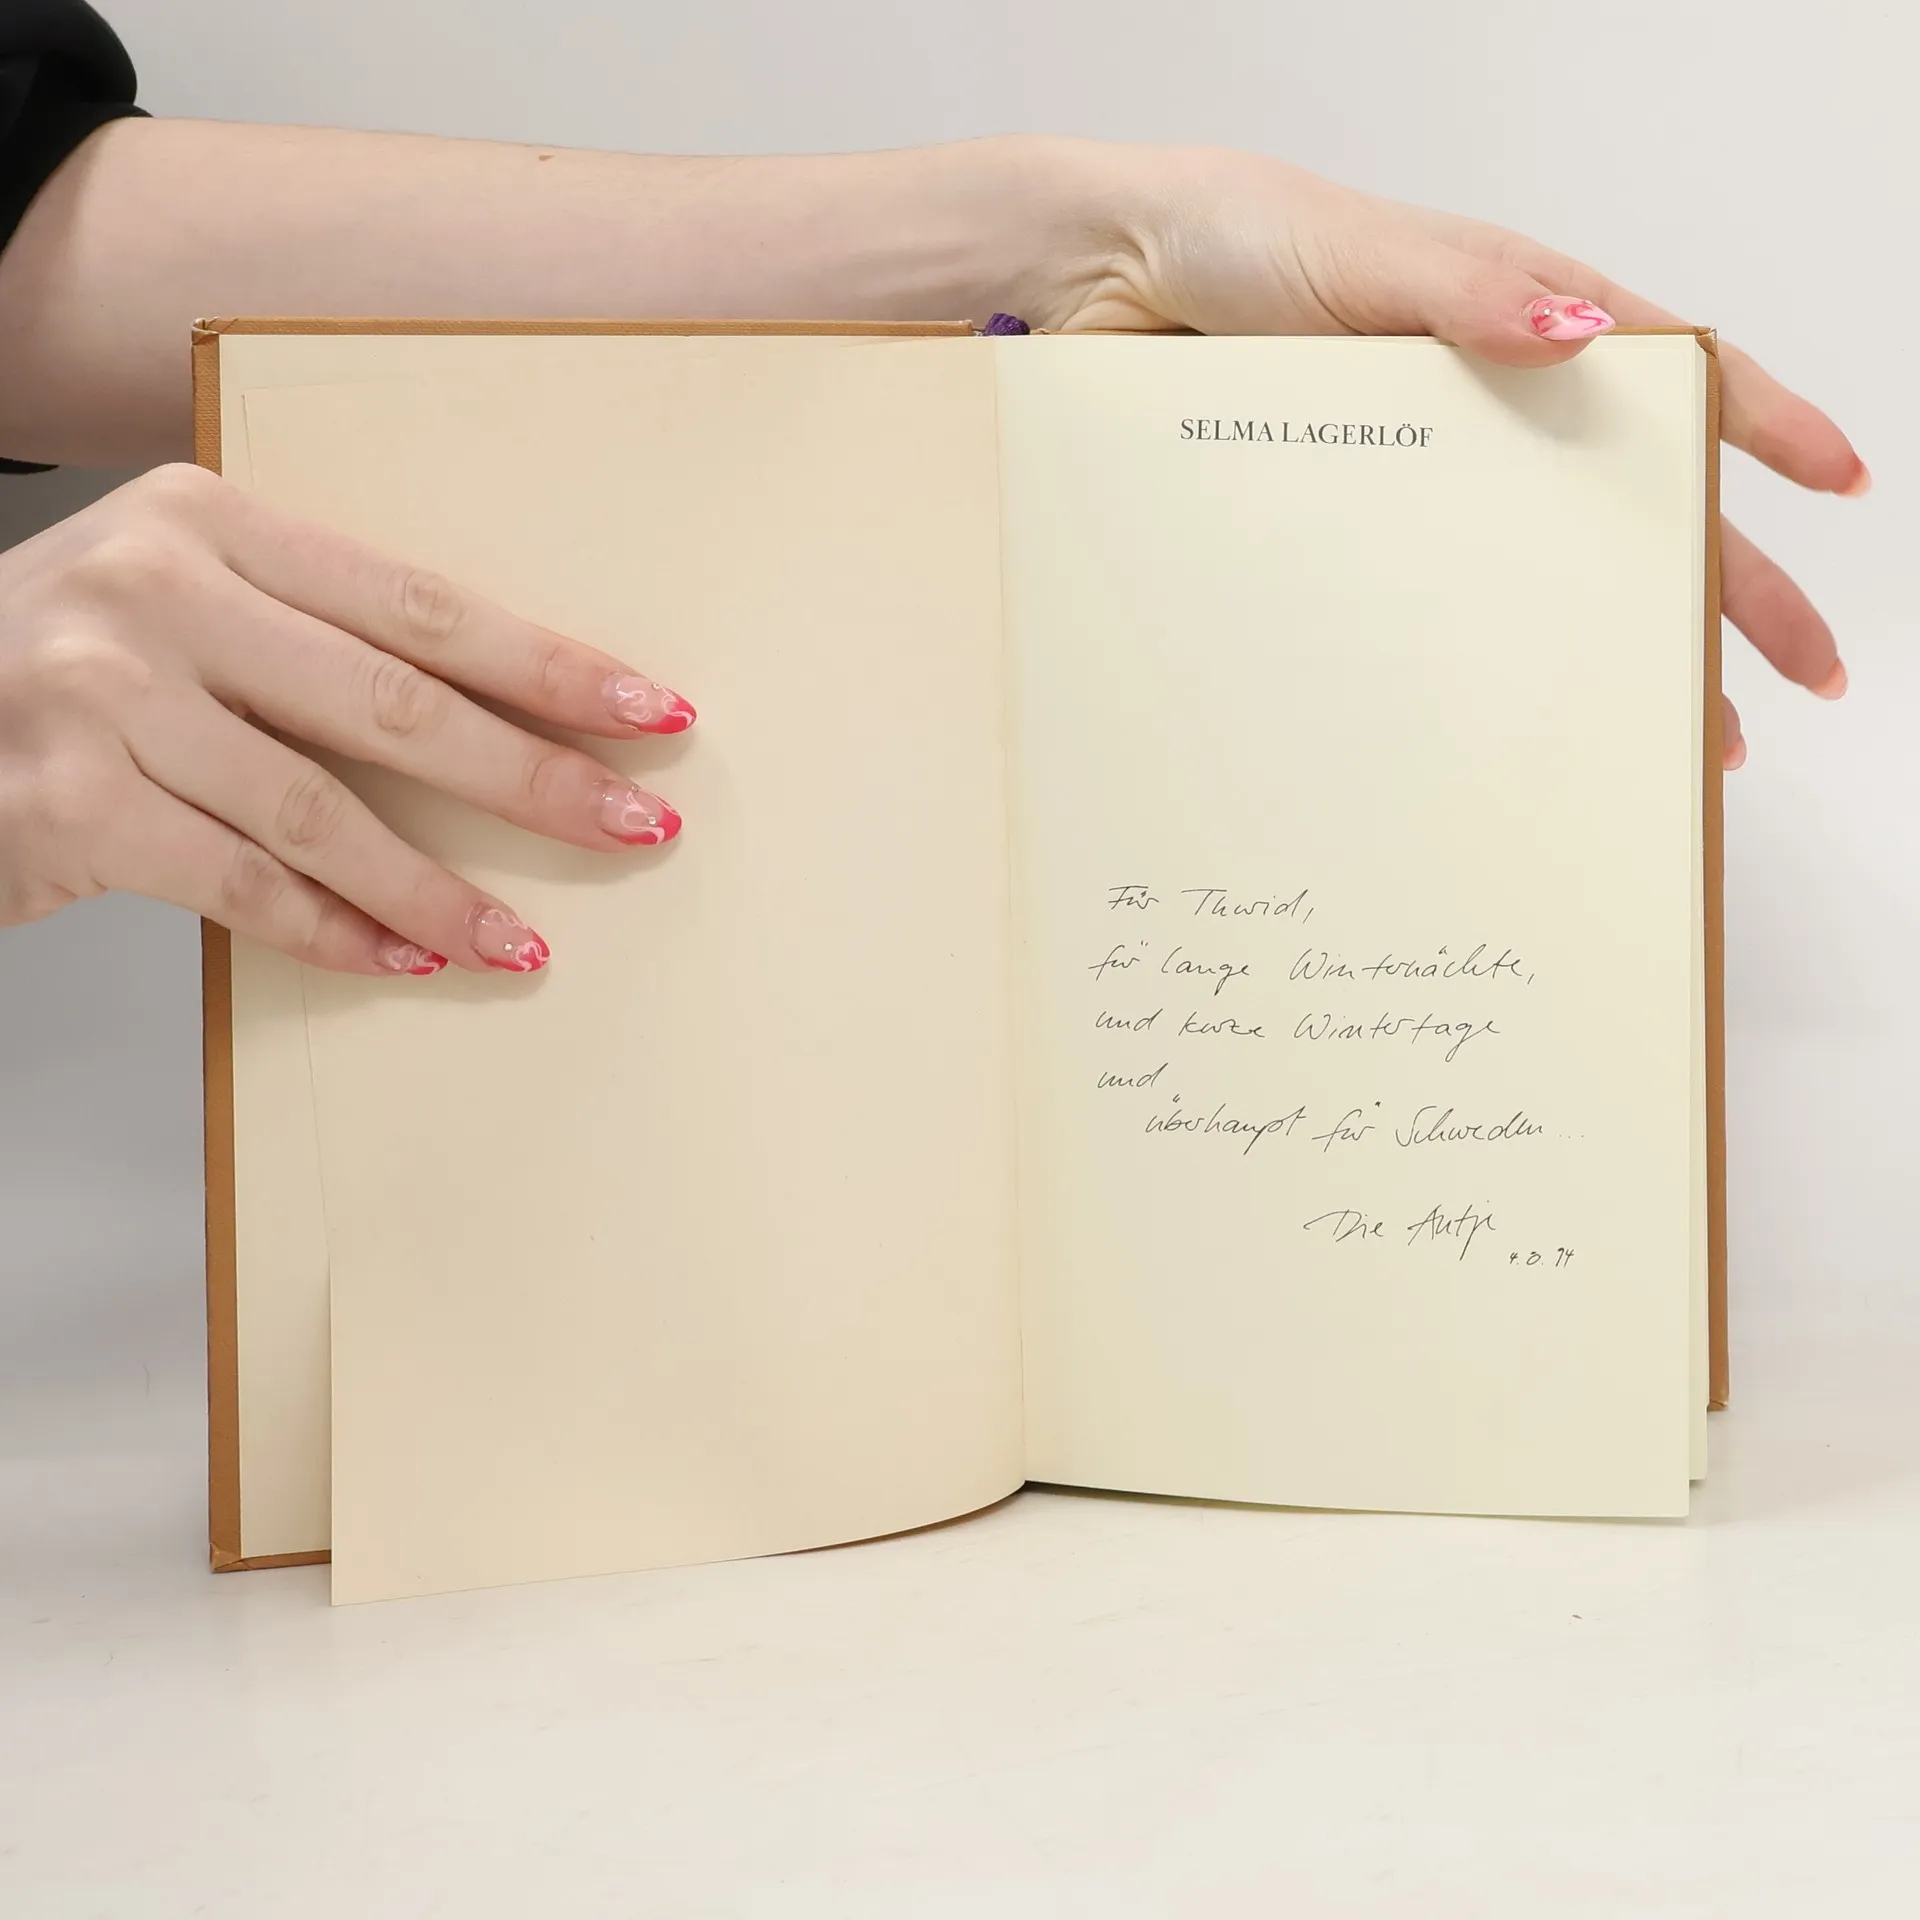 SELMA LAGERLÖF
Für
für lange Winternächte,
und kurze Wintertage
und
überhaupt für Schweden...
Die Antje
4.3.94